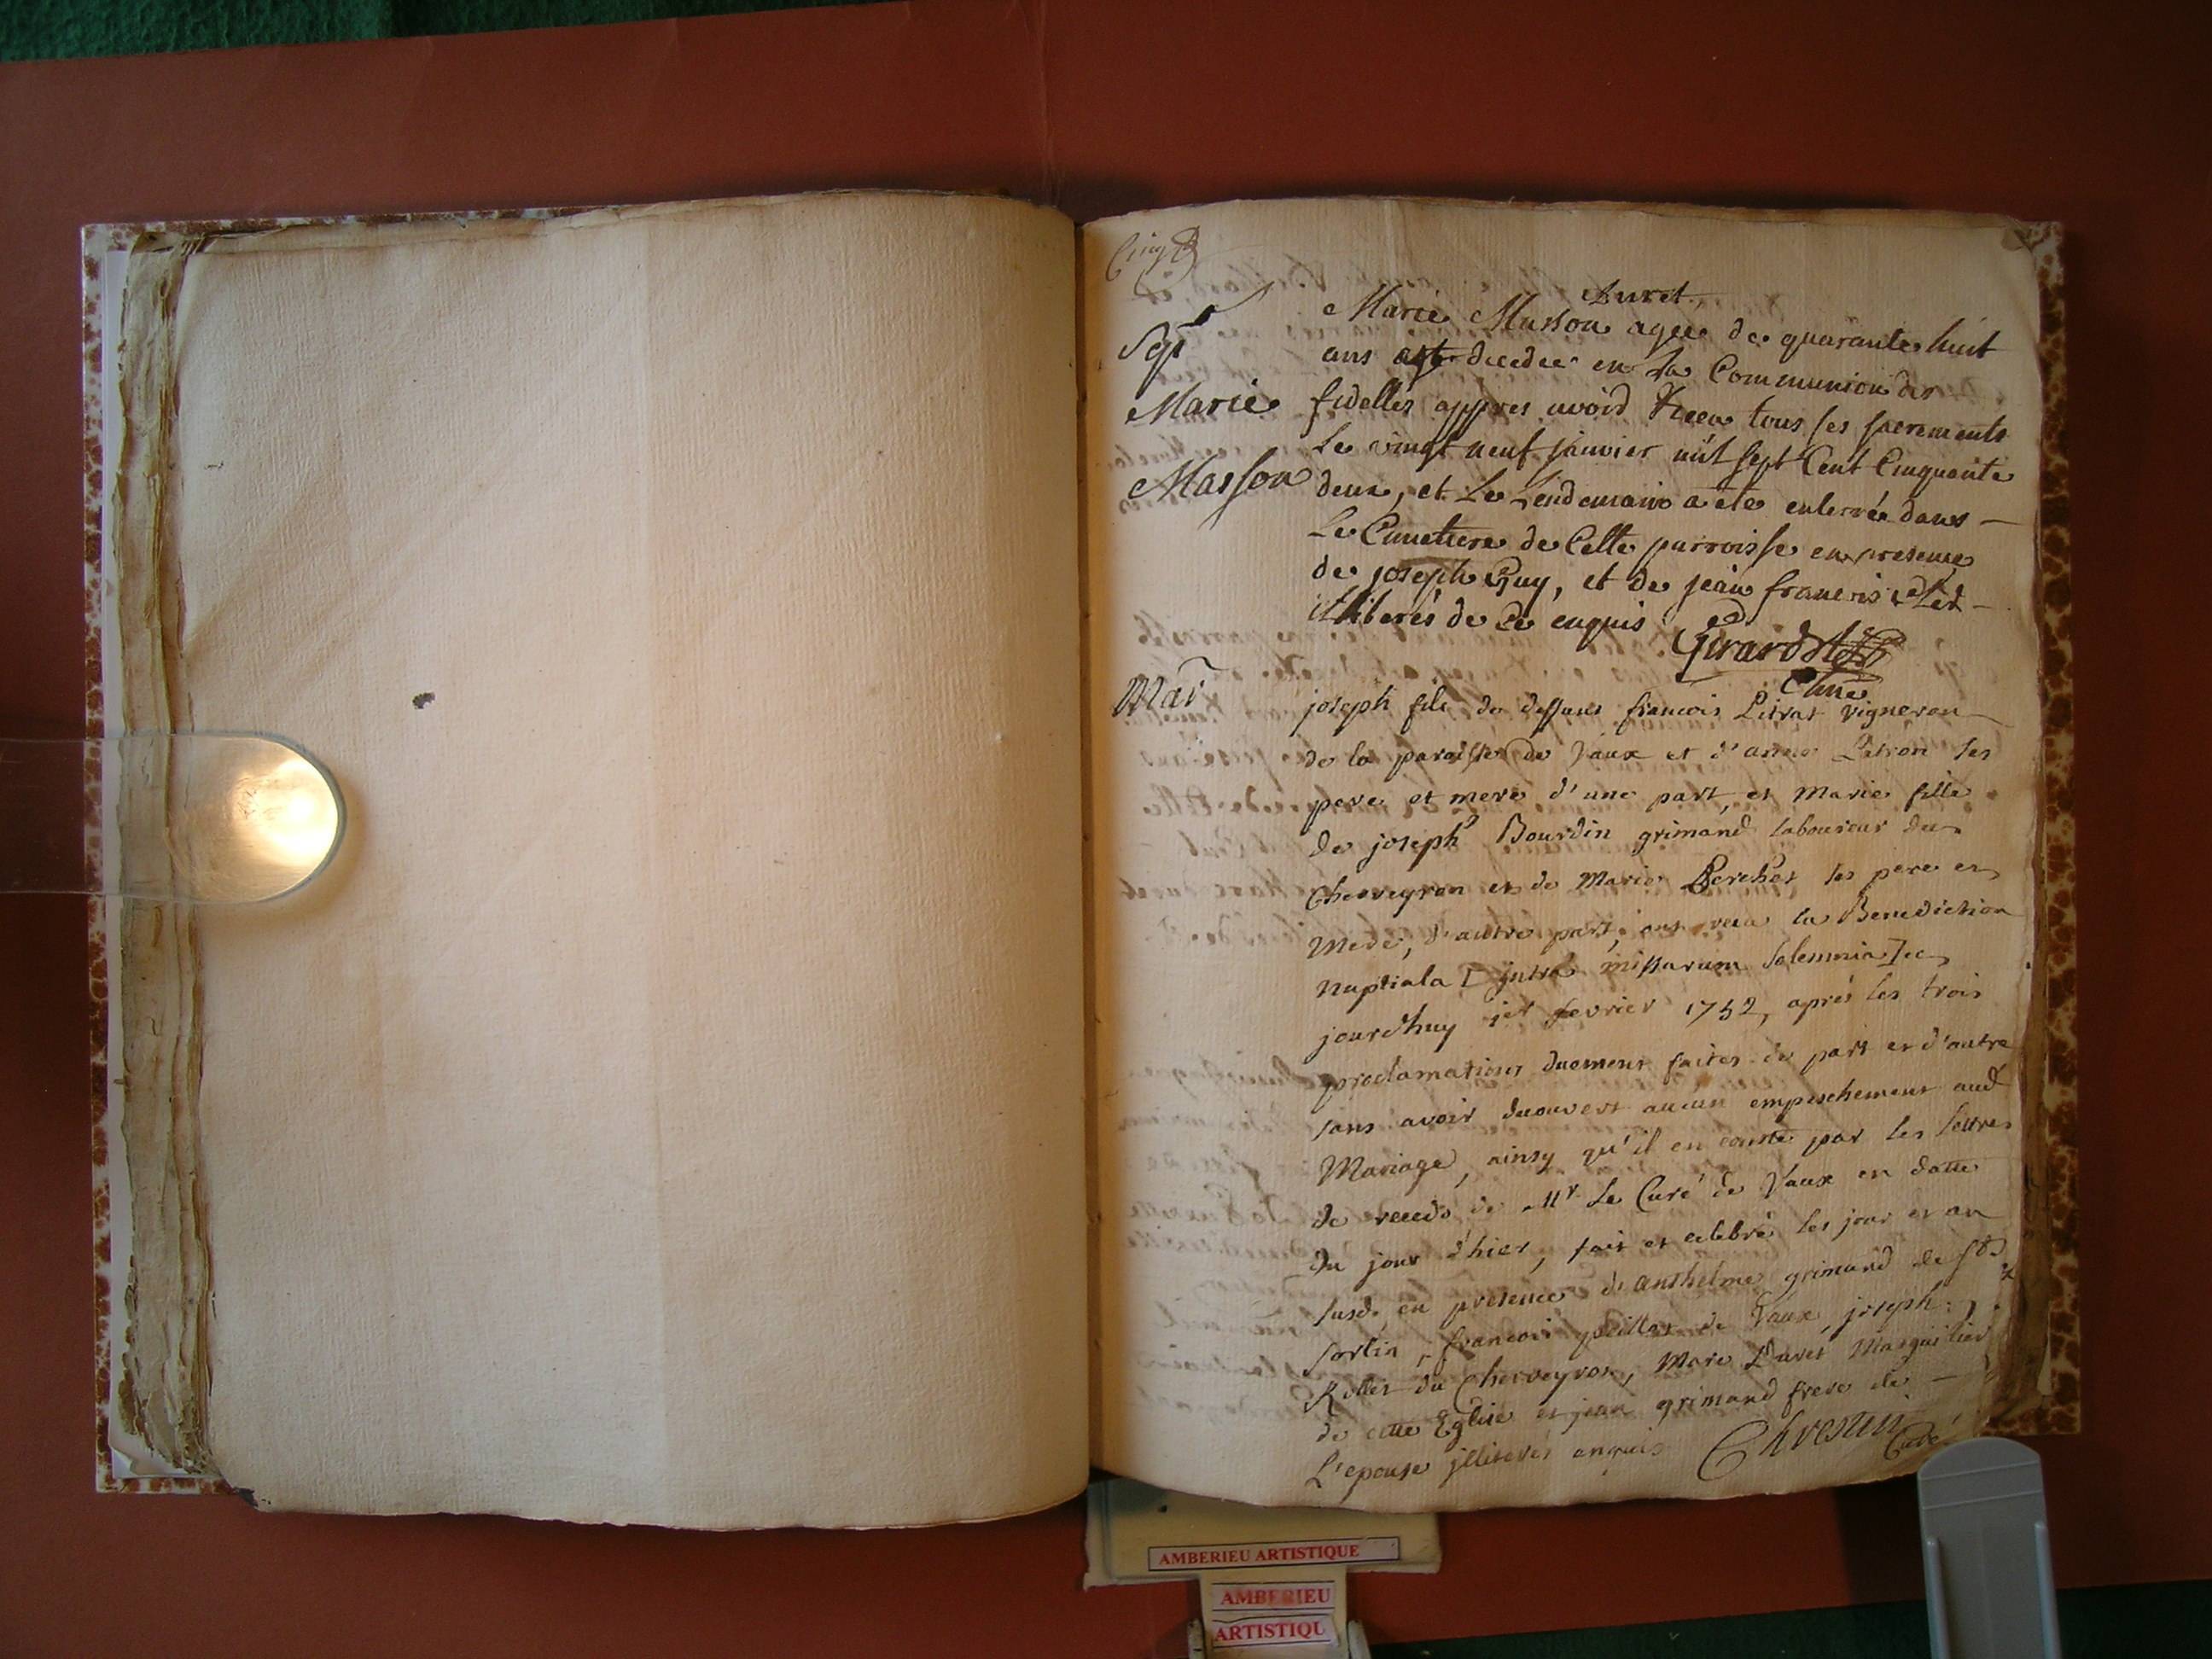 Cinq
Sep
Marie
Masson
Marie Masson agée de quarante huit
ans est decedee en la Communion des
fidelles appres avoir receu tous ses sacrements
Le vingt neuf janvier mil sept Cent Cinquante
deux, et Le Lendemain a ete enterrée dans
Le Cimetiere de Cette parroisse en presence
de joseph Guy, et de jean francois
illiberés de ce enquis Girard
Mar
joseph fils de deffunt francois vigneron
de la paroisse de Vaux et d'anne ses
pere et mere d'une part, et Marie fille
de joseph Bourdin grimand laboureur du
Cherveyron et de Marie Berchet ses pere et
Mere, d'autre part, ont receu la Benediction
nuptiala [jntra missarum solemnia] ce
jourdhuy 1er fevrier 1752, aprés les trois
proclamations duement faites de part et d'autre
sans avoir decouvert aucun empeschement aud
Mariage, ainsy qu'il en conste par les lettres
de recedo de Mr Le Curé de Vaux en datte
du jour d'hier, fait et celebré les jour et an
susd. en presence d'anthelme grimand de St
sorlin, francois de Vaux, joseph
Rollet du Cherveyron, Marc Duret Marguillier
de cette Eglise et jean grimand frere de
L'epouse jlliterés enquis Chrestin
Curé
AMBERIEU ARTISTIQUE
AMBERIEU
ARTISTIQU